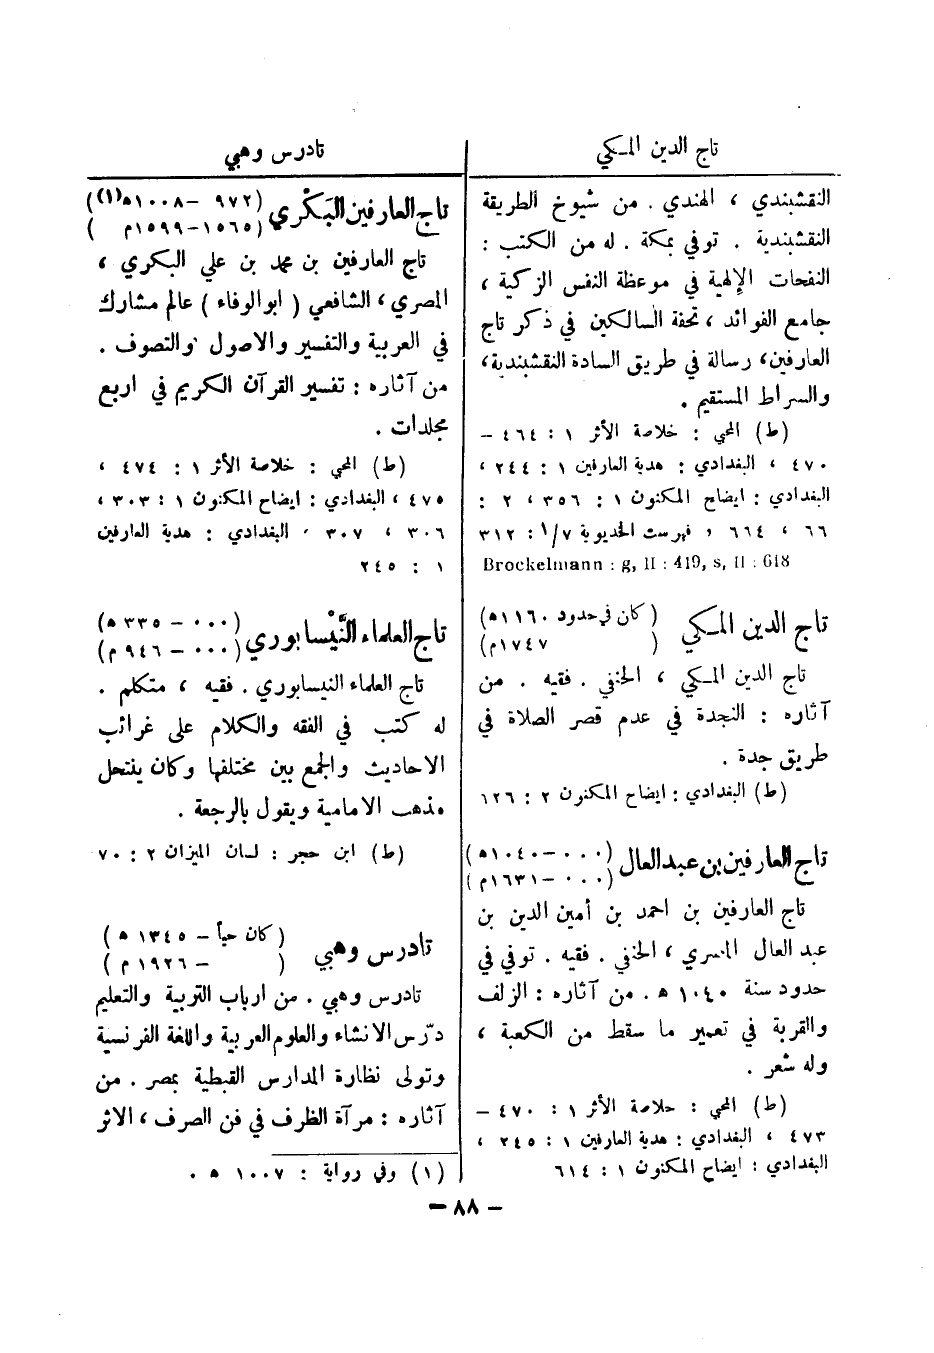 تاج الدين المكي
النقشبندي ، الهندي . من شيوخ الطريقة
النقشبندية . توفي بمكة . له من الكتب :
النفحات الإلهية في موعظة النفس الزكية ،
جامع الفوائد ، تحفة السالكين في ذكر تاج
العارفين، رسالة في طريق السادة النقشبندية،
والسراط المستقيم .
(ط) المحبي : خلاصة الأثر ١ : ٤٦٤ –
٤٧٠ ، البغدادي : هدية العارفين ١ : ٢٤٤ ،
البغدادي : ايضاح المكنون ١ : ٣٥٦ ، ٢ :
٦٦ ، ٦٦٤ ، فهرست الخديوية ٧/١ : ٣١٢
Brockelmann : g, II : 419, s, II : 618
تاج الدين المكي (كان في حدود ١١٦٠ھ)
( ١٧٤٧م)
تاج الدين المكي ، الحنفي . فقيه . من
آثاره : النجدة في عدم قصر الصلاة في
طريق جدة .
(ط) البغدادي : ايضاح المكنون ٢ : ١٢٦
تاج العارفين بن عبد العال (٠٠٠ – ١٠٤٠ھ)
(٠٠٠ – ١٦٣١م)
تاج العارفين بن احمد بن أمين الدين بن
عبد العال المصري ، الحنفي . فقيه . توفي في
حدود سنة ١٠٤٠ ھ . من آثاره : الزلف
والقربة في تعمير ما سقط من الكعبة ،
وله شعر .
(ط) المحبي : خلاصة الأثر ١ : ٤٧٠ –
٤٧٣ ، البغدادي : هدية العارفين ١ : ٢٤٥ ،
البغدادي : ايضاح المكنون ١ : ٦١٤
تادرس وهبي
تاج العارفين البَكْري (٩٧٢ – ١٠٠٨ھ(١))
(١٥٦٥ – ١٥٩٩م )
تاج العارفين بن محمد بن علي البكري ،
المصري ، الشافعي ( ابو الوفاء ) عالم مشارك
في العربية والتفسير والاصول والتصوف .
من آثاره : تفسير القرآن الكريم في اربع
مجلدات .
(ط) المحبي : خلاصة الأثر ١ : ٤٧٤ ،
٤٧٥ ، البغدادي : ايضاح المكنون ١ : ٣٠٣ ،
٣٠٦ ، ٣٠٧ ، البغدادي : هدية العارفين
١ : ٢٤٥
تاج العلماء النَّيسابوري (٠٠٠ – ٣٣٥ ھ)
(٠٠٠ – ٩٤٦ م)
تاج العلماء النيسابوري . فقيه ، متكلم .
له كتب في الفقه والكلام على غرائب
الاحاديث والجمع بين مختلفها وكان ينتحل
مذهب الامامية ويقول بالرجعة .
(ط) ابن حجر : لسان الميزان ٢ : ٧٠
تادرس وهبي (كان حياً – ١٣٤٥ ھ)
( – ١٩٢٦ م)
تادرس وهبي . من ارباب التربية والتعليم
درّس الانشاء والعلوم العربية واللغة الفرنسية
وتولى نظارة المدارس القبطية بمصر . من
آثاره : مرآة الظرف في فن الصرف ، الاثر
(١) وفي رواية : ١٠٠٧ ھ .
– ٨٨ –